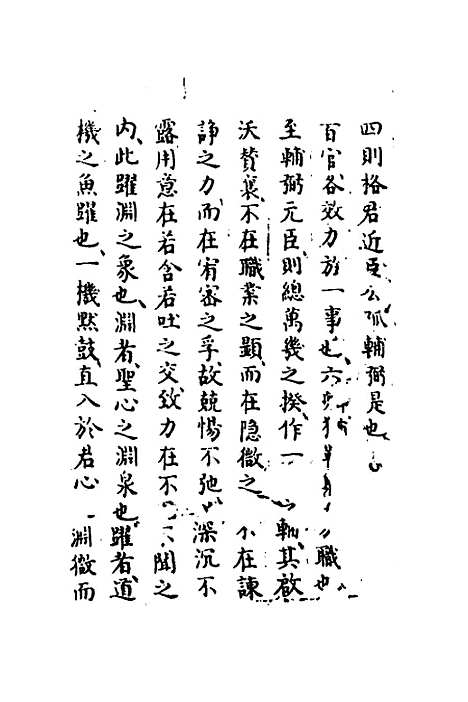 四則格君近臣公孤輔弼是也
百官各效力於一事也六職也
至輔弼元臣則總萬幾之揆作一軸其啟
沃贊襄不在職業之顯而在隐微之不在諫
諍之力而在宥密之孚故兢惕不弛深沉不
露用意在若含若吐之交致力在不聞之
内此躍淵之象也淵者聖心之淵泉也躍者道
機之魚躍也一機黙鼓直入於君心淵微而